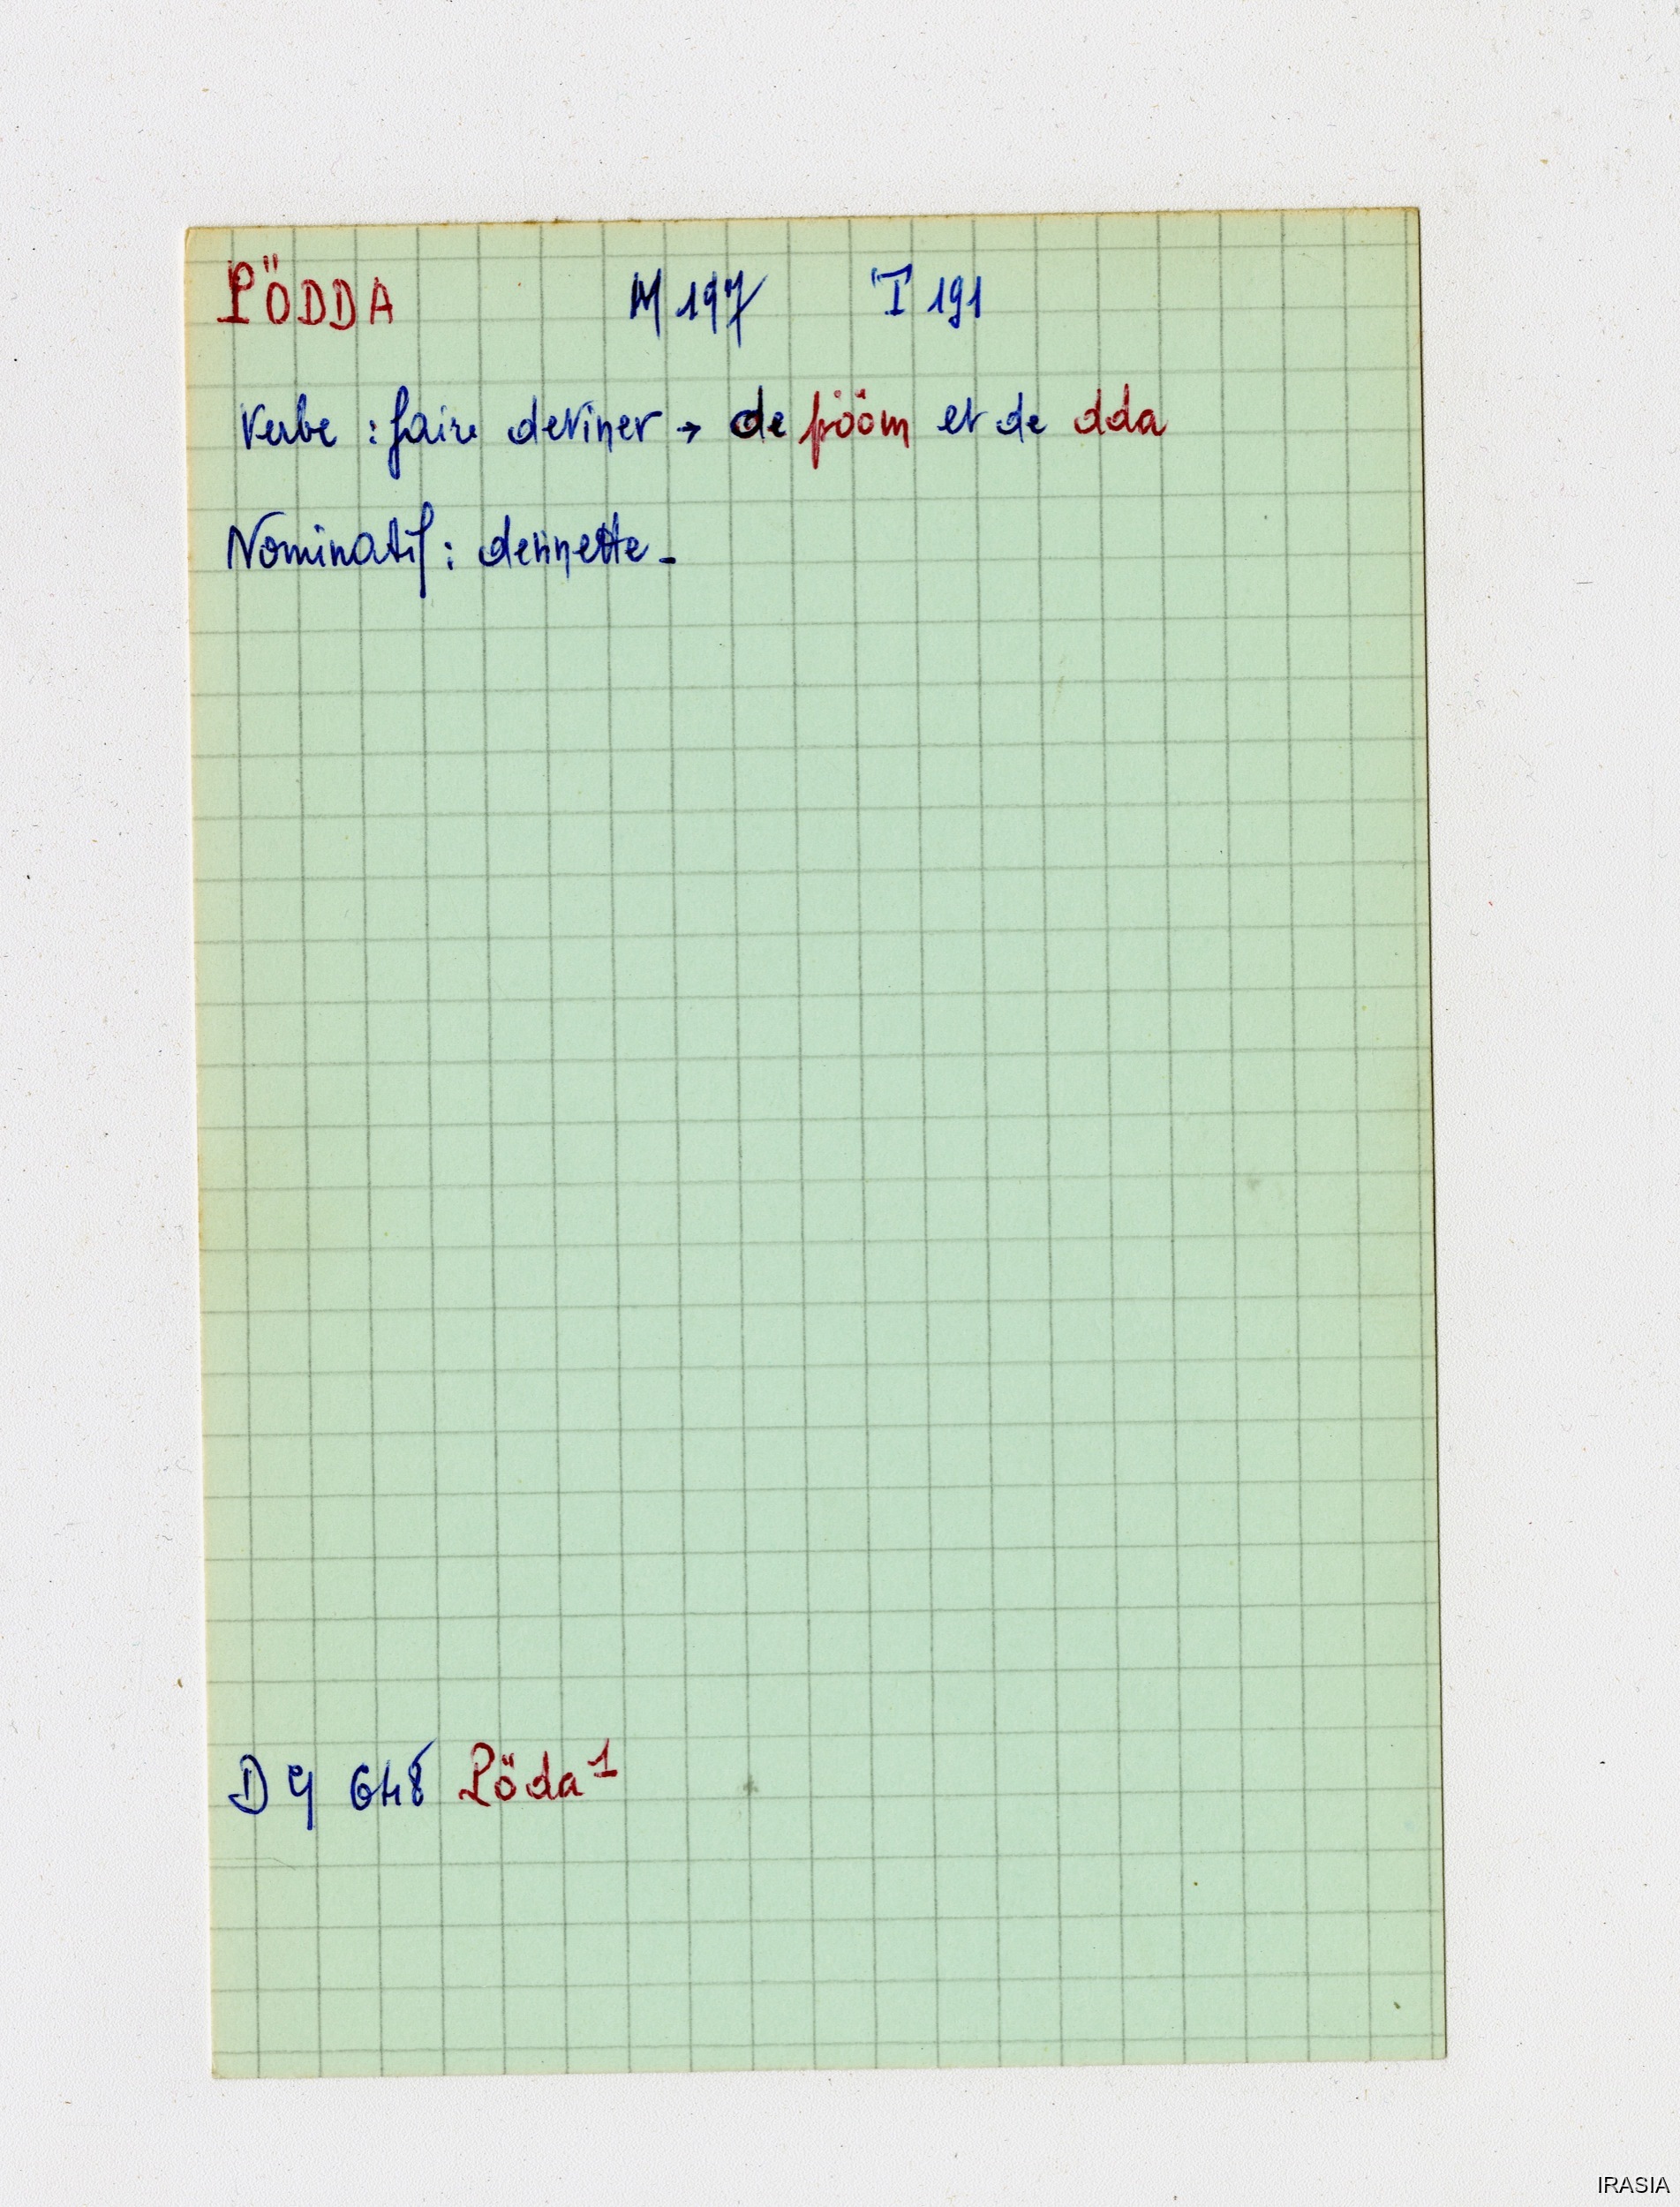 PÖDDA M 197 I 191
Verbe : faire deviner → de pööm et de dda
Nominatif : devinette -
D 4 648 Pöda 1
IRASIA